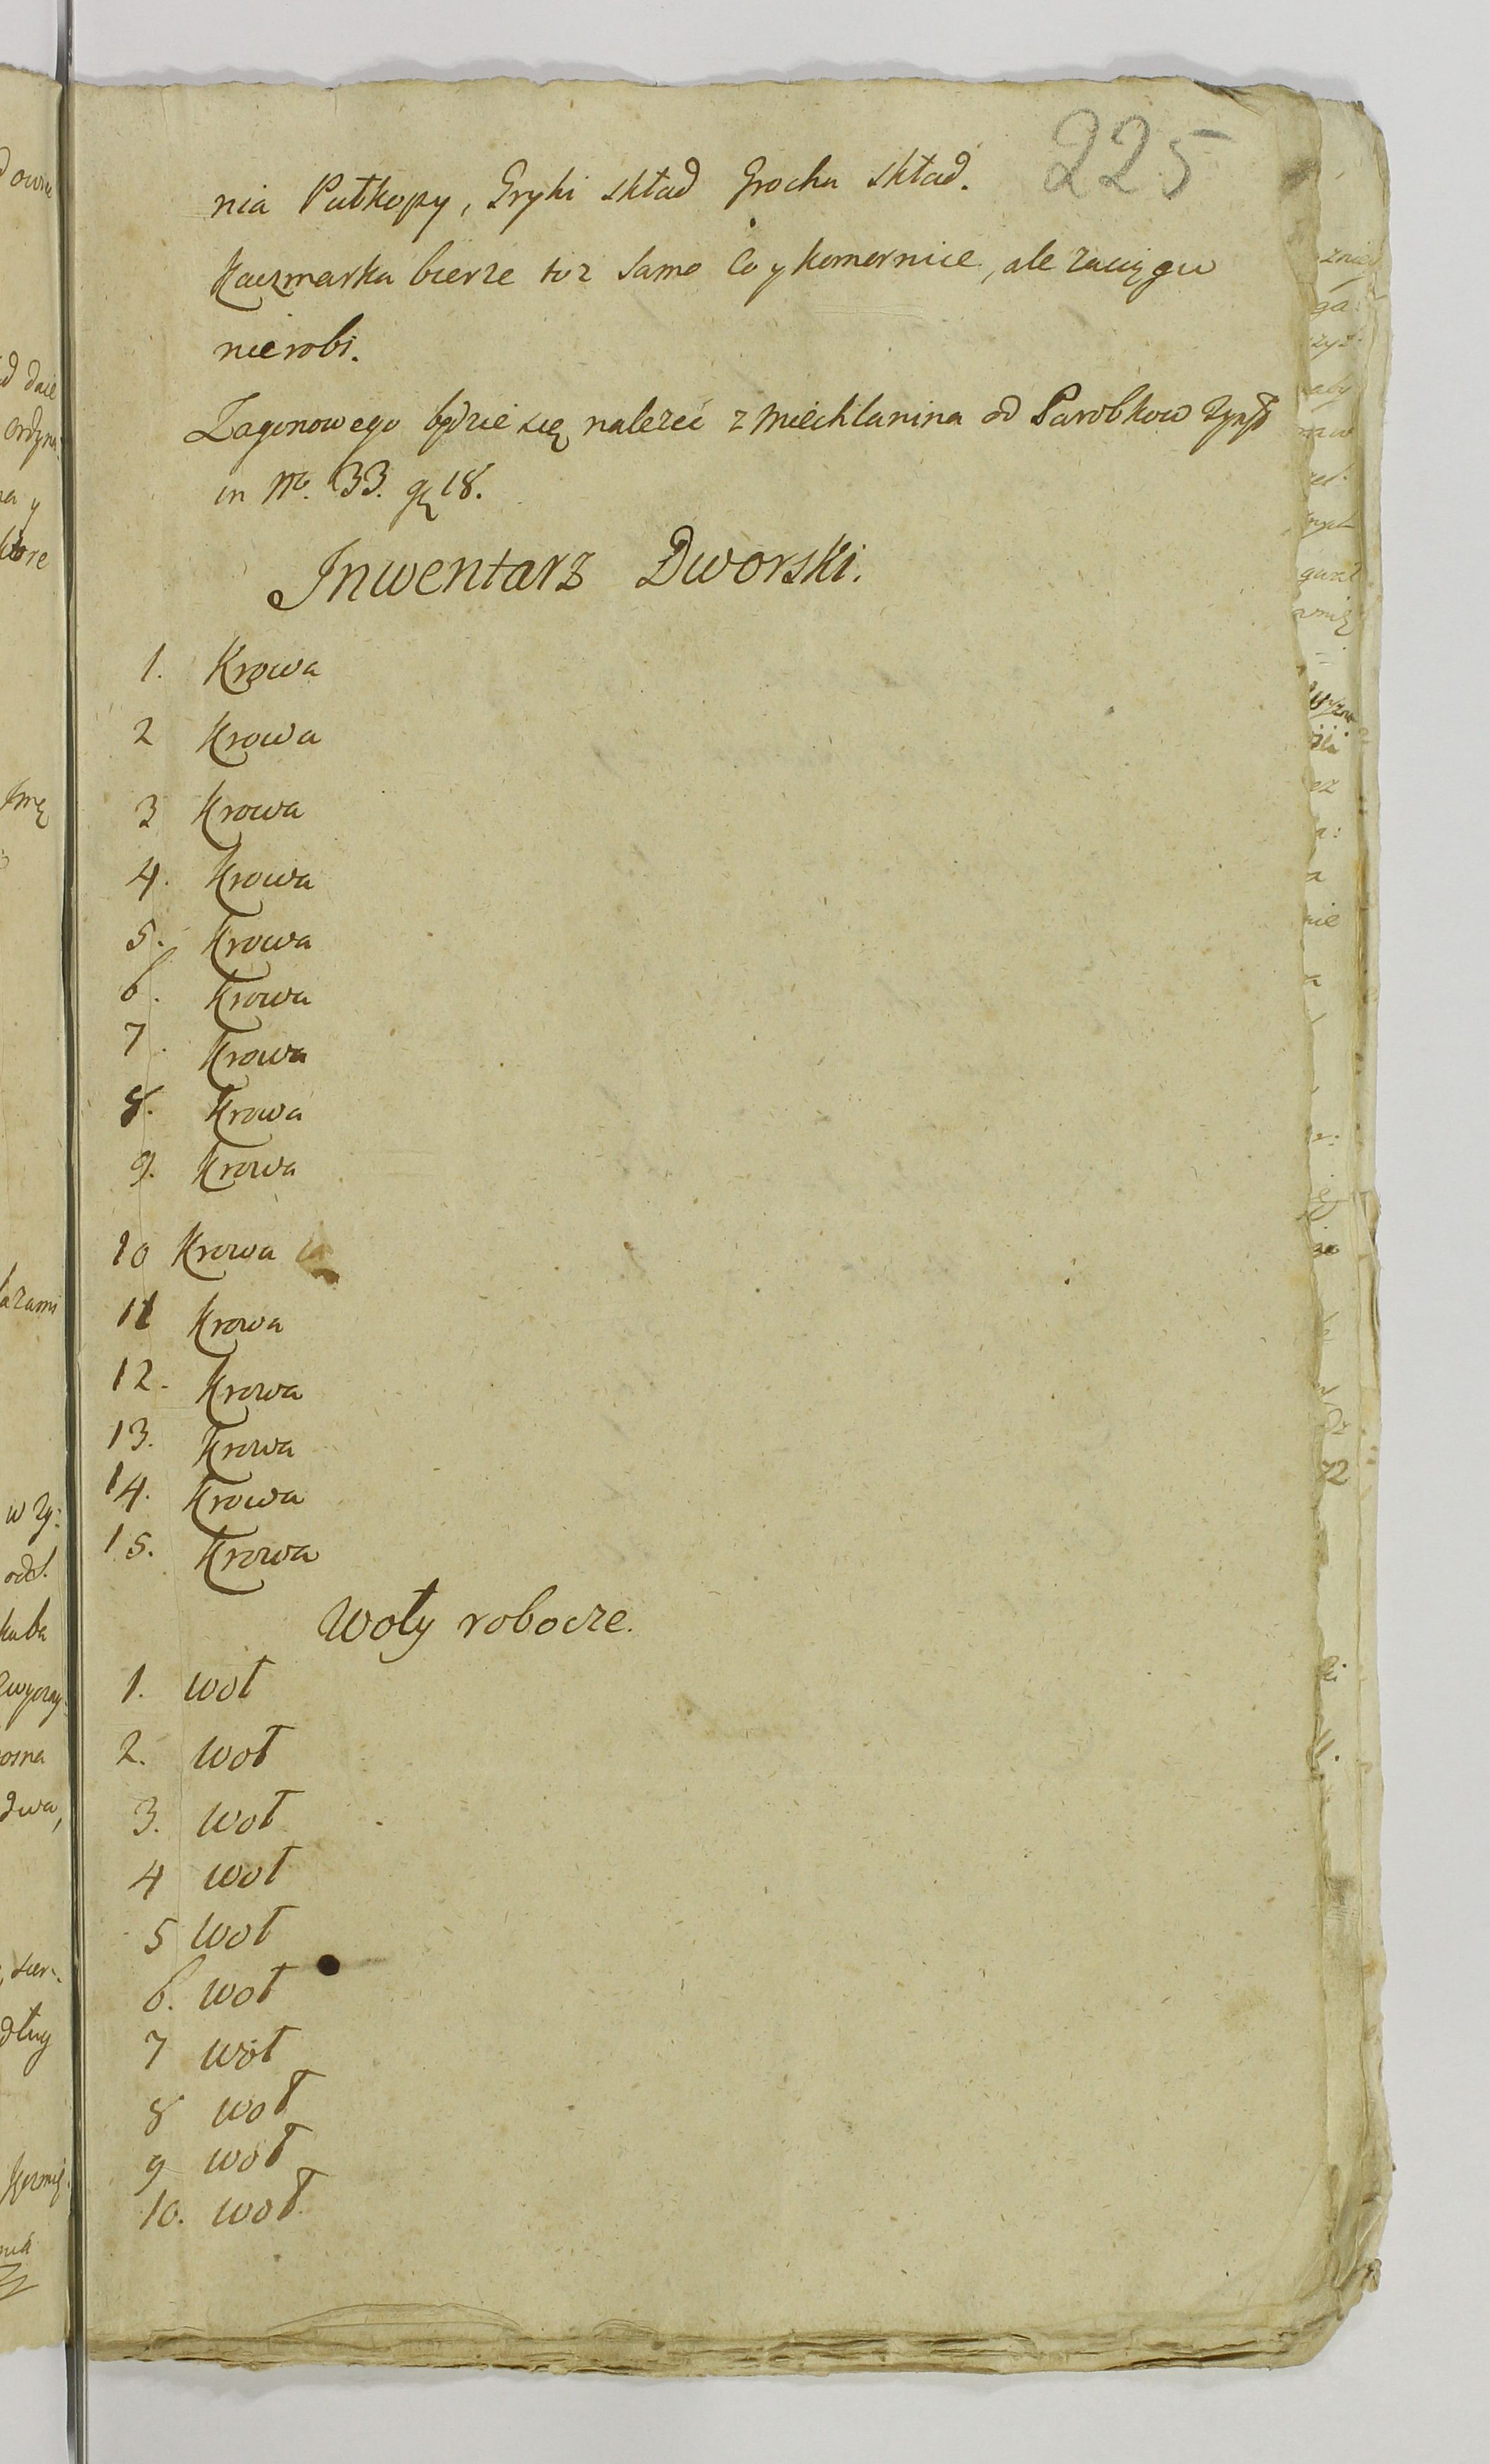 225
nia Pułkopy, Gryki skład Grochu skład.
Kaczmarka bierze toz samo Co y komornice, ale zaciągu
nierobi.
Zagonowego będzie się nalezeć z Miechlanina od Parobkow
in No. 33. gr 18.
Inwentarz Dworski.
1. Krowa
2 Krowa
3 Krowa
4. Krowa
5. Krowa
6. Krowa
7. Krowa
8. Krowa
9. Krowa
10 Krowa
11 Krowa
12. Krowa
13. Krowa
14. Krowa
15. Krowa
Woły robocze.
1. woł
2. woł
3. woł
4 woł
5 woł
6. woł
7 woł
8 woł
9 woł
10. woł